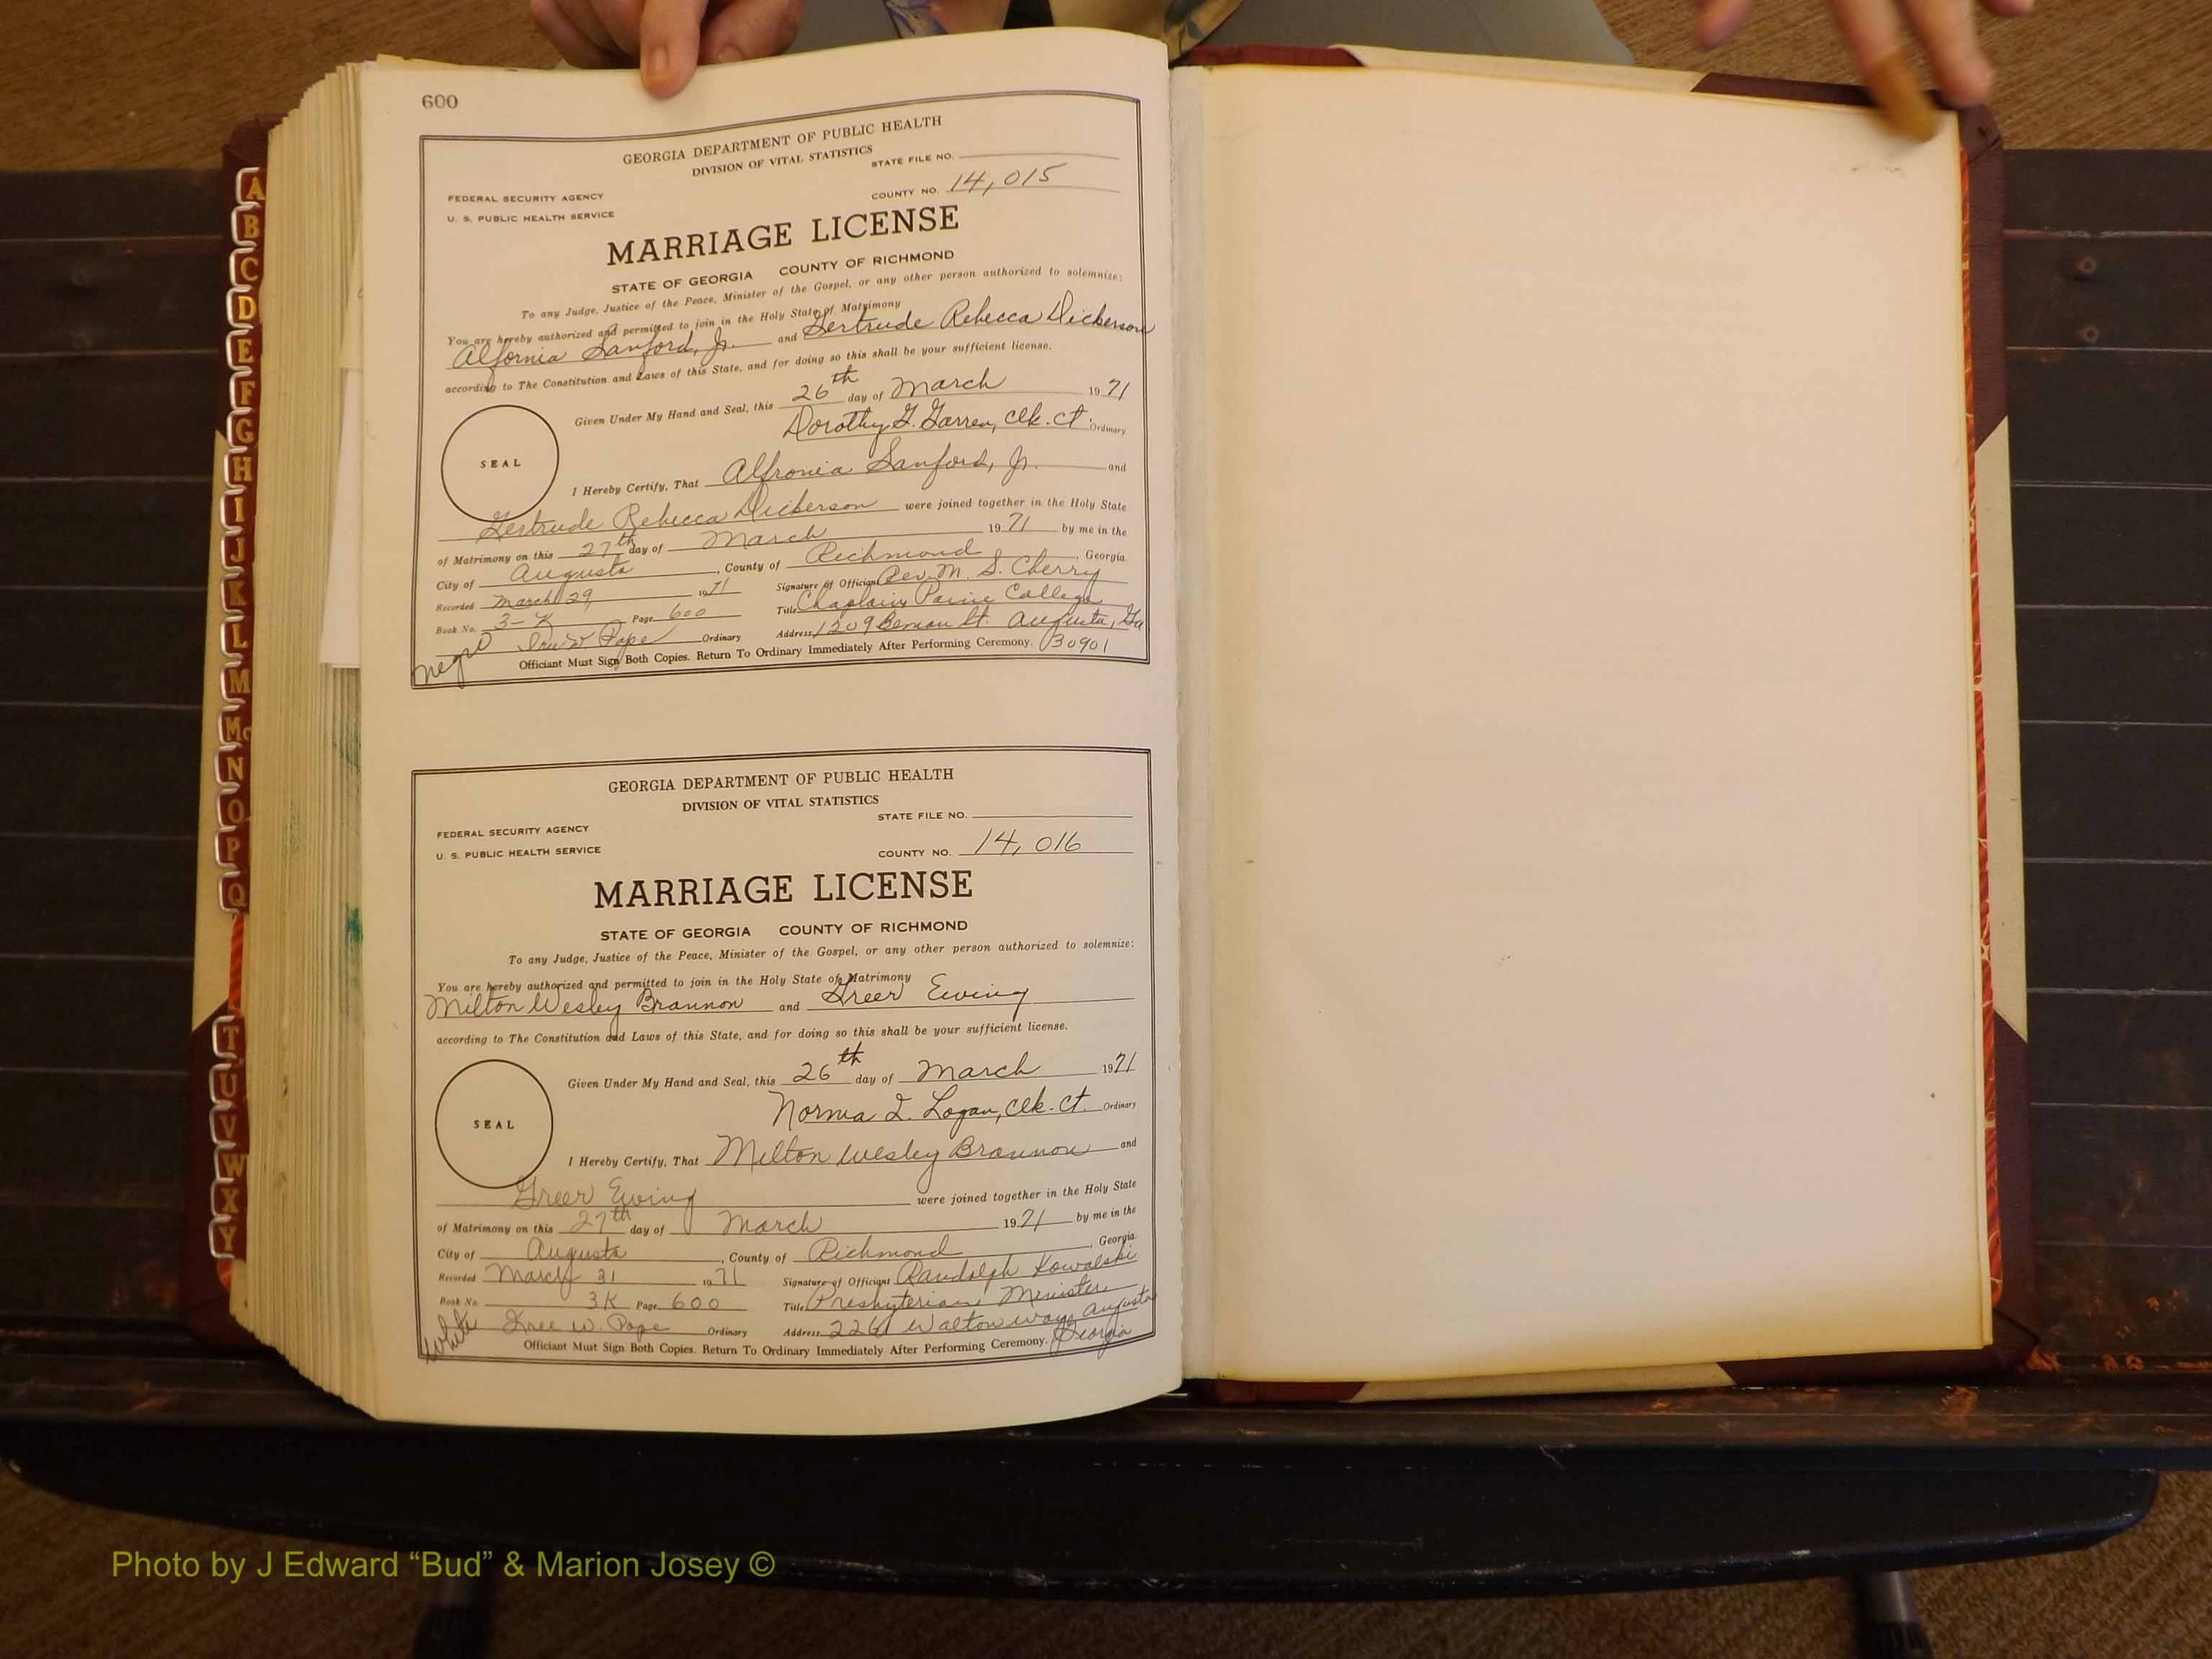 600
GEORGIA DEPARTMENT OF PUBLIC HEALTH
DIVISION OF VITAL STATISTICS
STATE FILE NO.
FEDERAL SECURITY AGENCY
COUNTY NO. 14,015
U. S. PUBLIC HEALTH SERVICE
MARRIAGE LICENSE
STATE OF GEORGIA COUNTY OF RICHMOND
To any Judge, Justice of the Peace, Minister of the Gospel, or any other person authorized to solemnize:
You are hereby authorized and permitted to join in the Holy State of Matrimony
Alfornia Sanford, Jr. and Gertrude Rebecca Dickerson
according to The Constitution and Laws of this State, and for doing so this shall be your sufficient license.
Given Under My Hand and Seal, this 26th day of March 1971
Dorothy G. Garren, Clk. Ct. Ordinary
SEAL
I Hereby Certify, That Alfronia Sanford, Jr. and
Gertrude Rebecca Dickerson were joined together in the Holy State
of Matrimony on this 27th day of March 1971 by me in the
City of Augusta, County of Richmond, Georgia.
Recorded March 29, 1971 Signature of Officiant Rev. M. S. Cherry
Book No. 3-K Page 600 Title Chaplain, Paine College
W. Pope Ordinary Address 1209 Beman St. Augusta, Ga
Officiant Must Sign Both Copies. Return To Ordinary Immediately After Performing Ceremony. 30901
negro
GEORGIA DEPARTMENT OF PUBLIC HEALTH
DIVISION OF VITAL STATISTICS
STATE FILE NO.
FEDERAL SECURITY AGENCY
U. S. PUBLIC HEALTH SERVICE
COUNTY NO. 14,016
MARRIAGE LICENSE
STATE OF GEORGIA COUNTY OF RICHMOND
To any Judge, Justice of the Peace, Minister of the Gospel, or any other person authorized to solemnize:
You are hereby authorized and permitted to join in the Holy State of Matrimony
Milton Wesley Brannon and Greer Ewing
according to The Constitution and Laws of this State, and for doing so this shall be your sufficient license.
Given Under My Hand and Seal, this 26th day of March 1971
Norma I. Logan, Clk. Ct. Ordinary
SEAL
I Hereby Certify, That Milton Wesley Brannon and
Greer Ewing were joined together in the Holy State
of Matrimony on this 27th day of March 1971 by me in the
City of Augusta, County of Richmond, Georgia.
Recorded March 31 1971 Signature of Officiant Randolph Kowalski
Book No. 3K Page 600 Title Presbyterian Minister
W. Pope Ordinary Address 2261 Walton Way Augusta
Officiant Must Sign Both Copies. Return To Ordinary Immediately After Performing Ceremony. Georgia
White
A
B
C
D
E
F
G
H
I
J
K
L
M
Mc
N
O
P
Q
T
U
V
W
X
Y
Photo by J Edward “Bud” & Marion Josey ©